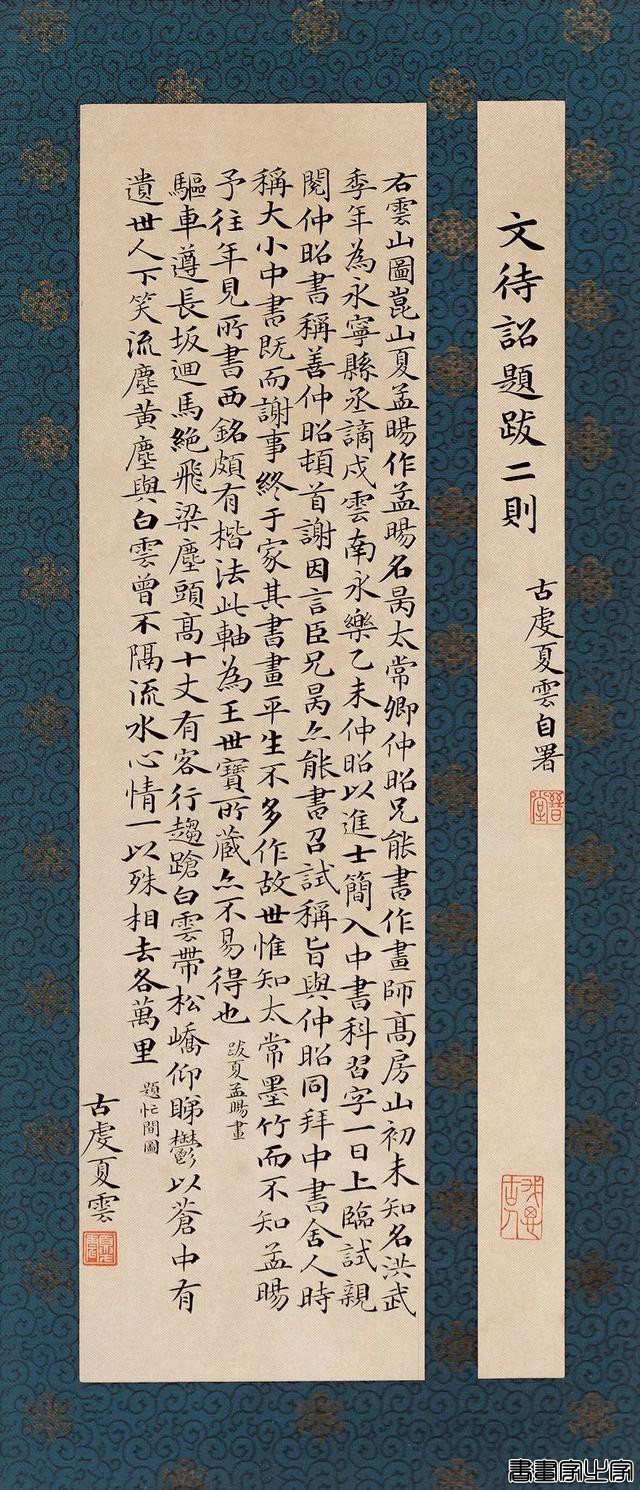 文待詔題跋二則
古虞夏雲自署
右雲山圖崑山夏孟暘作孟暘名昺太常卿仲昭兄能書作畫師髙房山初未知名洪武
季年為永寧縣丞謫戍雲南永樂乙未仲昭以進士簡入中書科習字一日上臨試親
閱仲昭書稱善仲昭頓首謝因言臣兄昺亦能書召試稱旨與仲昭同拜中書舍人時
稱大小中書既而謝事終于家其書畫平生不多作故世惟知太常墨竹而不知孟暘
予往年見所書西銘頗有楷法此軸為王世寶所藏亦不易得也 跋夏孟暘畫
驅車遵長坂迴馬絶飛梁塵頭髙十丈有客行趨蹌白雲帶松嶠仰睇鬱以蒼中有
遺世人下笑流塵黃塵與白雲曾不隔流水心情一以殊相去各萬里 題忙閒圖
古虞夏雲
書畫家之家